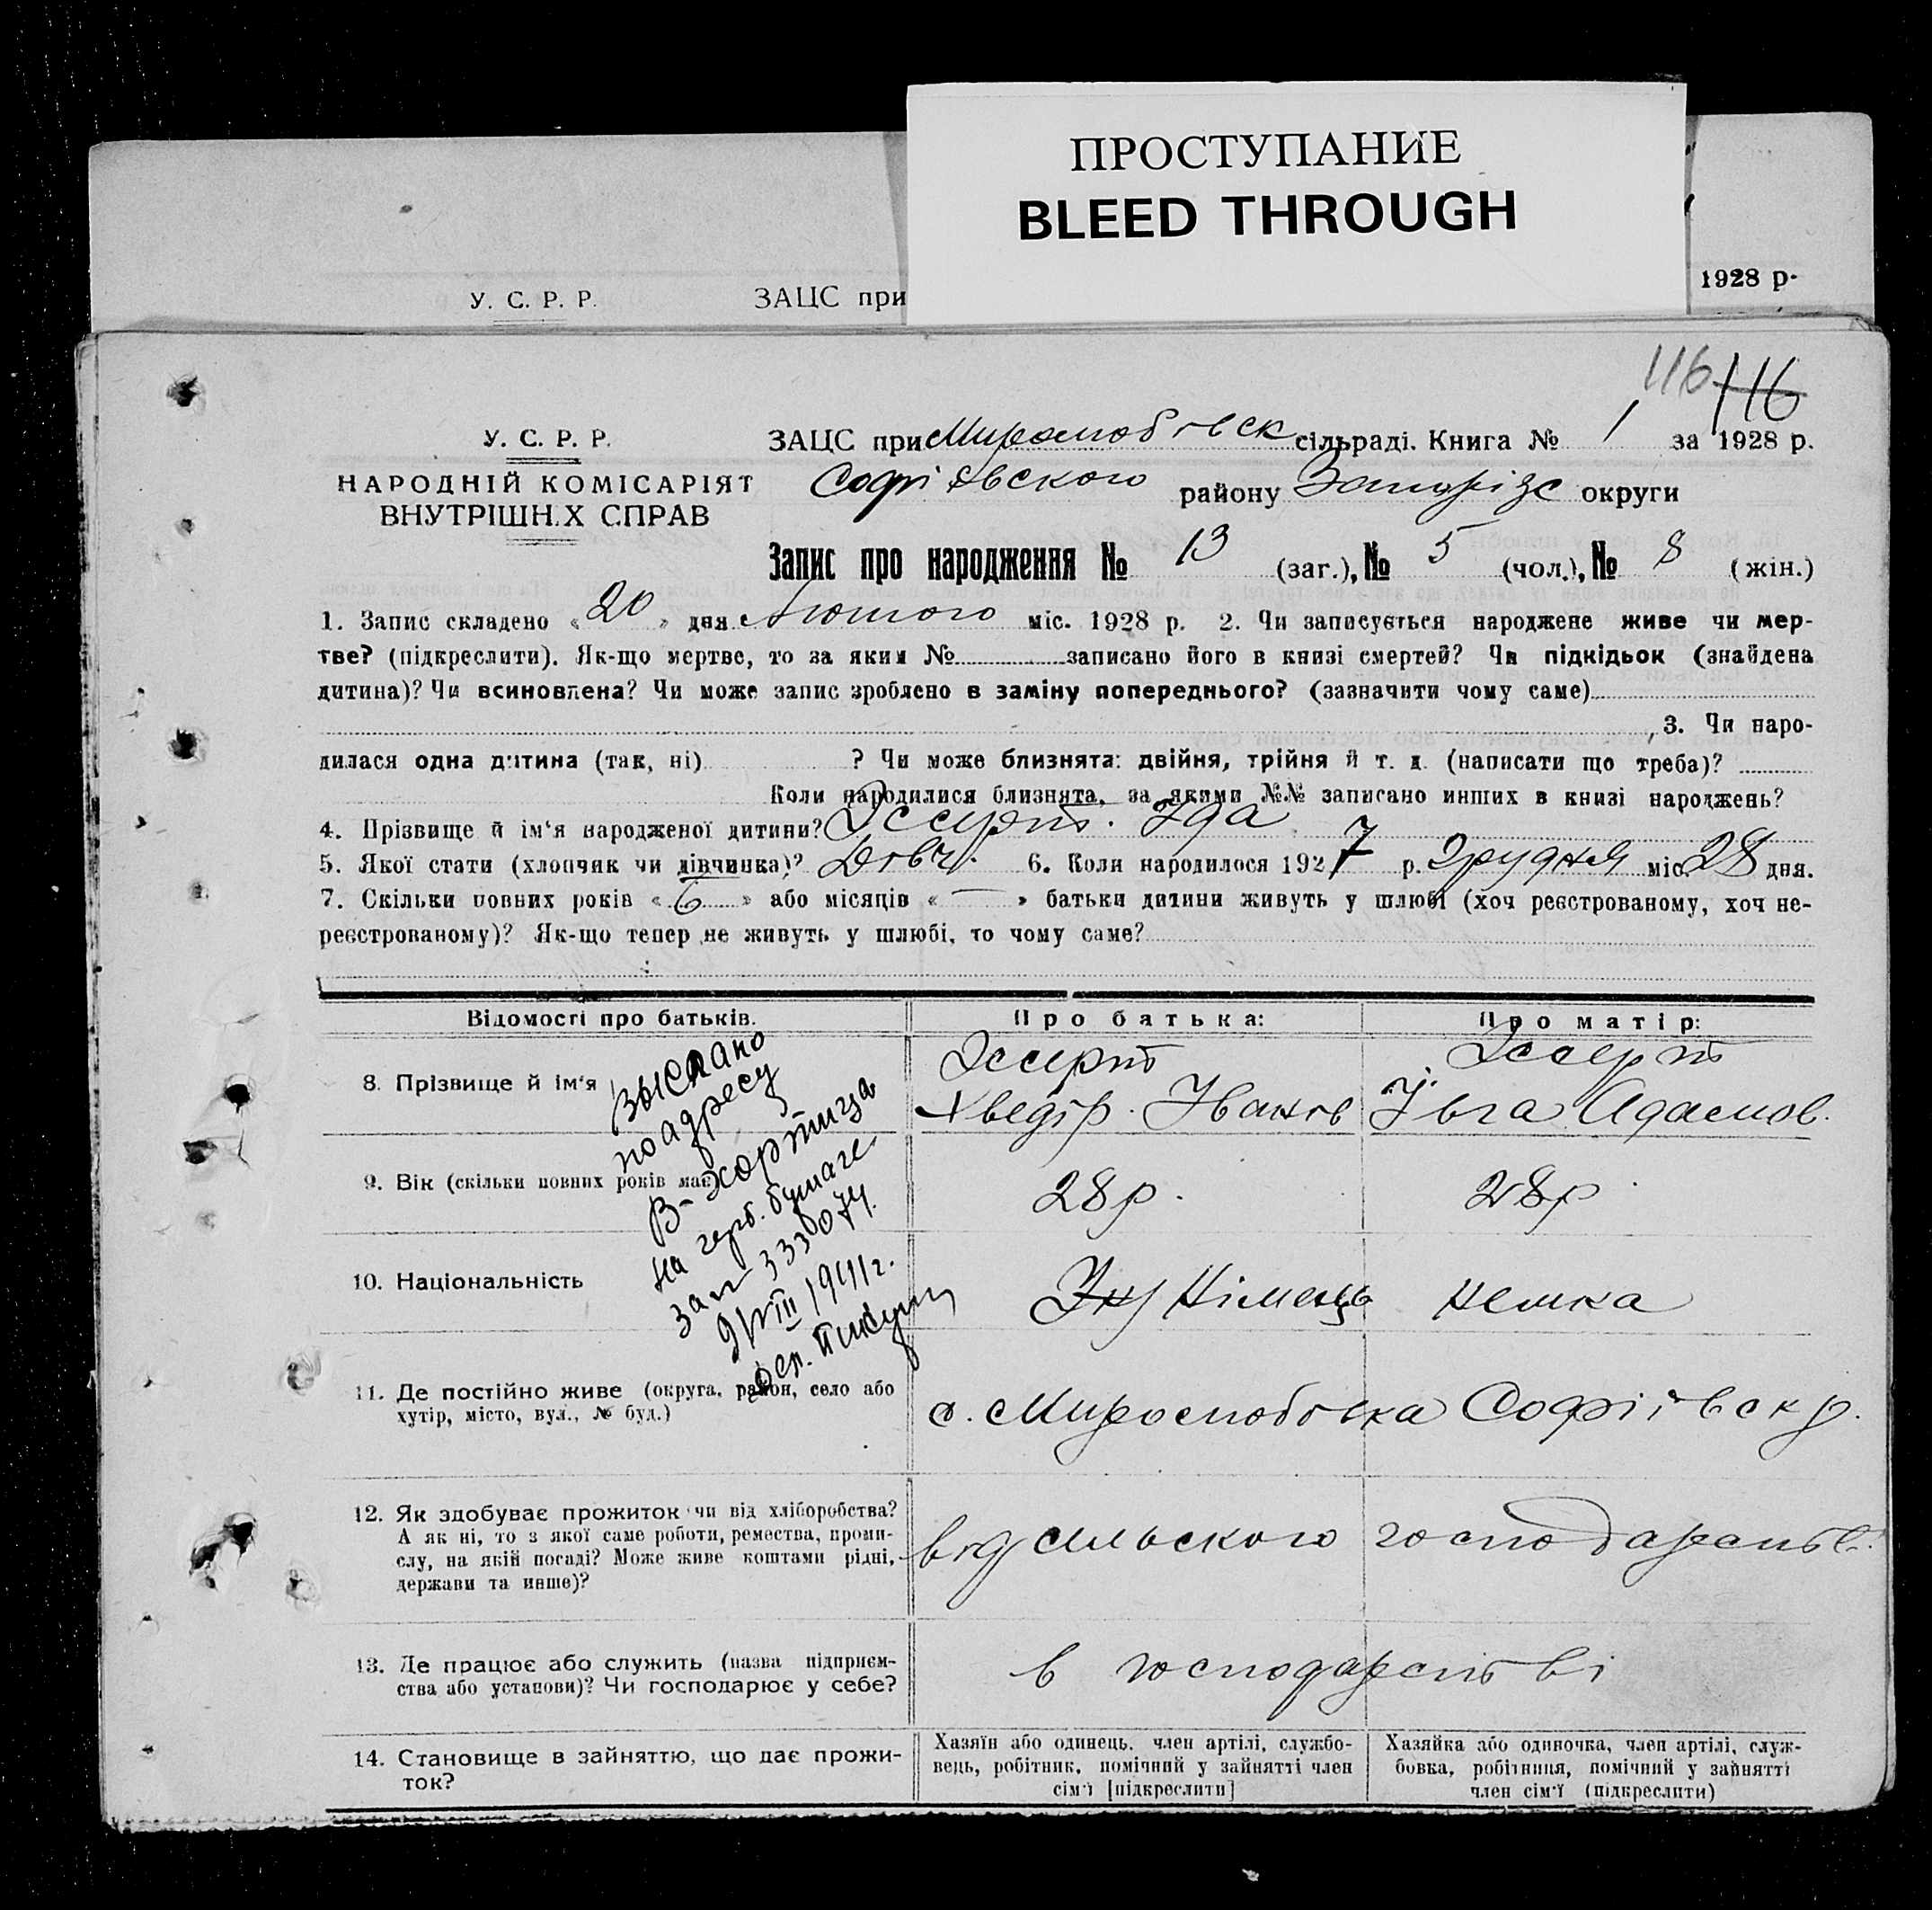 ПРОСТУПАНИЕ
BLEED THROUGH
У. С. Р. Р. ЗАЦС при 1928 р.
116 116
У. С. Р. Р.
НАРОДНІЙ КОМІСАРІЯТ
ВНУТРІШНІХ СПРАВ
ЗАЦС при сільраді. Книга № 1 за 1928 р.
Софіївского району Запоріз округи
Запис про народження № 13 (заг.), № 5 (чол.), № 8 (жін.)
1. Запис складено «20» дня Лютого міс. 1928 р. 2. Чи записується народжене живе чи мер-
тве? (підкреслити). Як-що мертве, то за яким № записано його в книзі смертей? Чи підкідьок (знайдена
дитина)? Чи всиновлена? Чи може запис зроблено в заміну попереднього? (зазначити чому саме)
3. Чи наро-
дилася одна дитина (так, ні) ? Чи може близнята: двійня, трійня й т. д. (написати що треба)?
Коли народилися близнята, за якими №№ записано инших в книзі народжень?
4. Прізвище й ім'я народженої дитини? Эссерт. Іда
5. Якої стати (хлопчик чи дівчинка)? Дівч. 6. Коли народилося 1927 р. Грудня міс. 28 дня.
7. Скільки повних років «6» або місяців «—» батьки дитини живуть у шлюбі (хоч реєстрованому, хоч не-
реєстрованому)? Як-що тепер не живуть у шлюбі, то чому саме?
Відомості про батьків. Про батька: Про матір:
8. Прізвище й ім'я
Эссерт
Хведір. Іванів
Эссерт
Ївга Адамов.
выслано
по адресу
В-Хортица
на герб. бумаге
333074
9/VIII 1941г.
9. Вік (скільки повних років має) 28 р. 28 р.
10. Національність Німець немка
11. Де постійно живе (округа, район, село або
хутір, місто, вул., № буд.)
Софіївск р.
12. Як здобуває прожиток чи від хліборобства?
А як ні, то з якої саме роботи, ремества, проми-
слу, на якій посаді? Може живе коштами рідні,
держави та инше)?
від сільского господарств.
13. Де працює або служить (назва підприєм-
ства або установи)? Чи господарює у себе?
в господарстві
14. Становище в зайняттю, що дає прожи-
ток?
Хазяїн або одинець, член артілі, службо-
вець, робітник, помічний у зайнятті член
сім'ї [підкреслити]
Хазяйка або одиночка, член артілі, служ-
бовка, робітниця, помічний у зайнятті
член сім'ї (підкреслити)